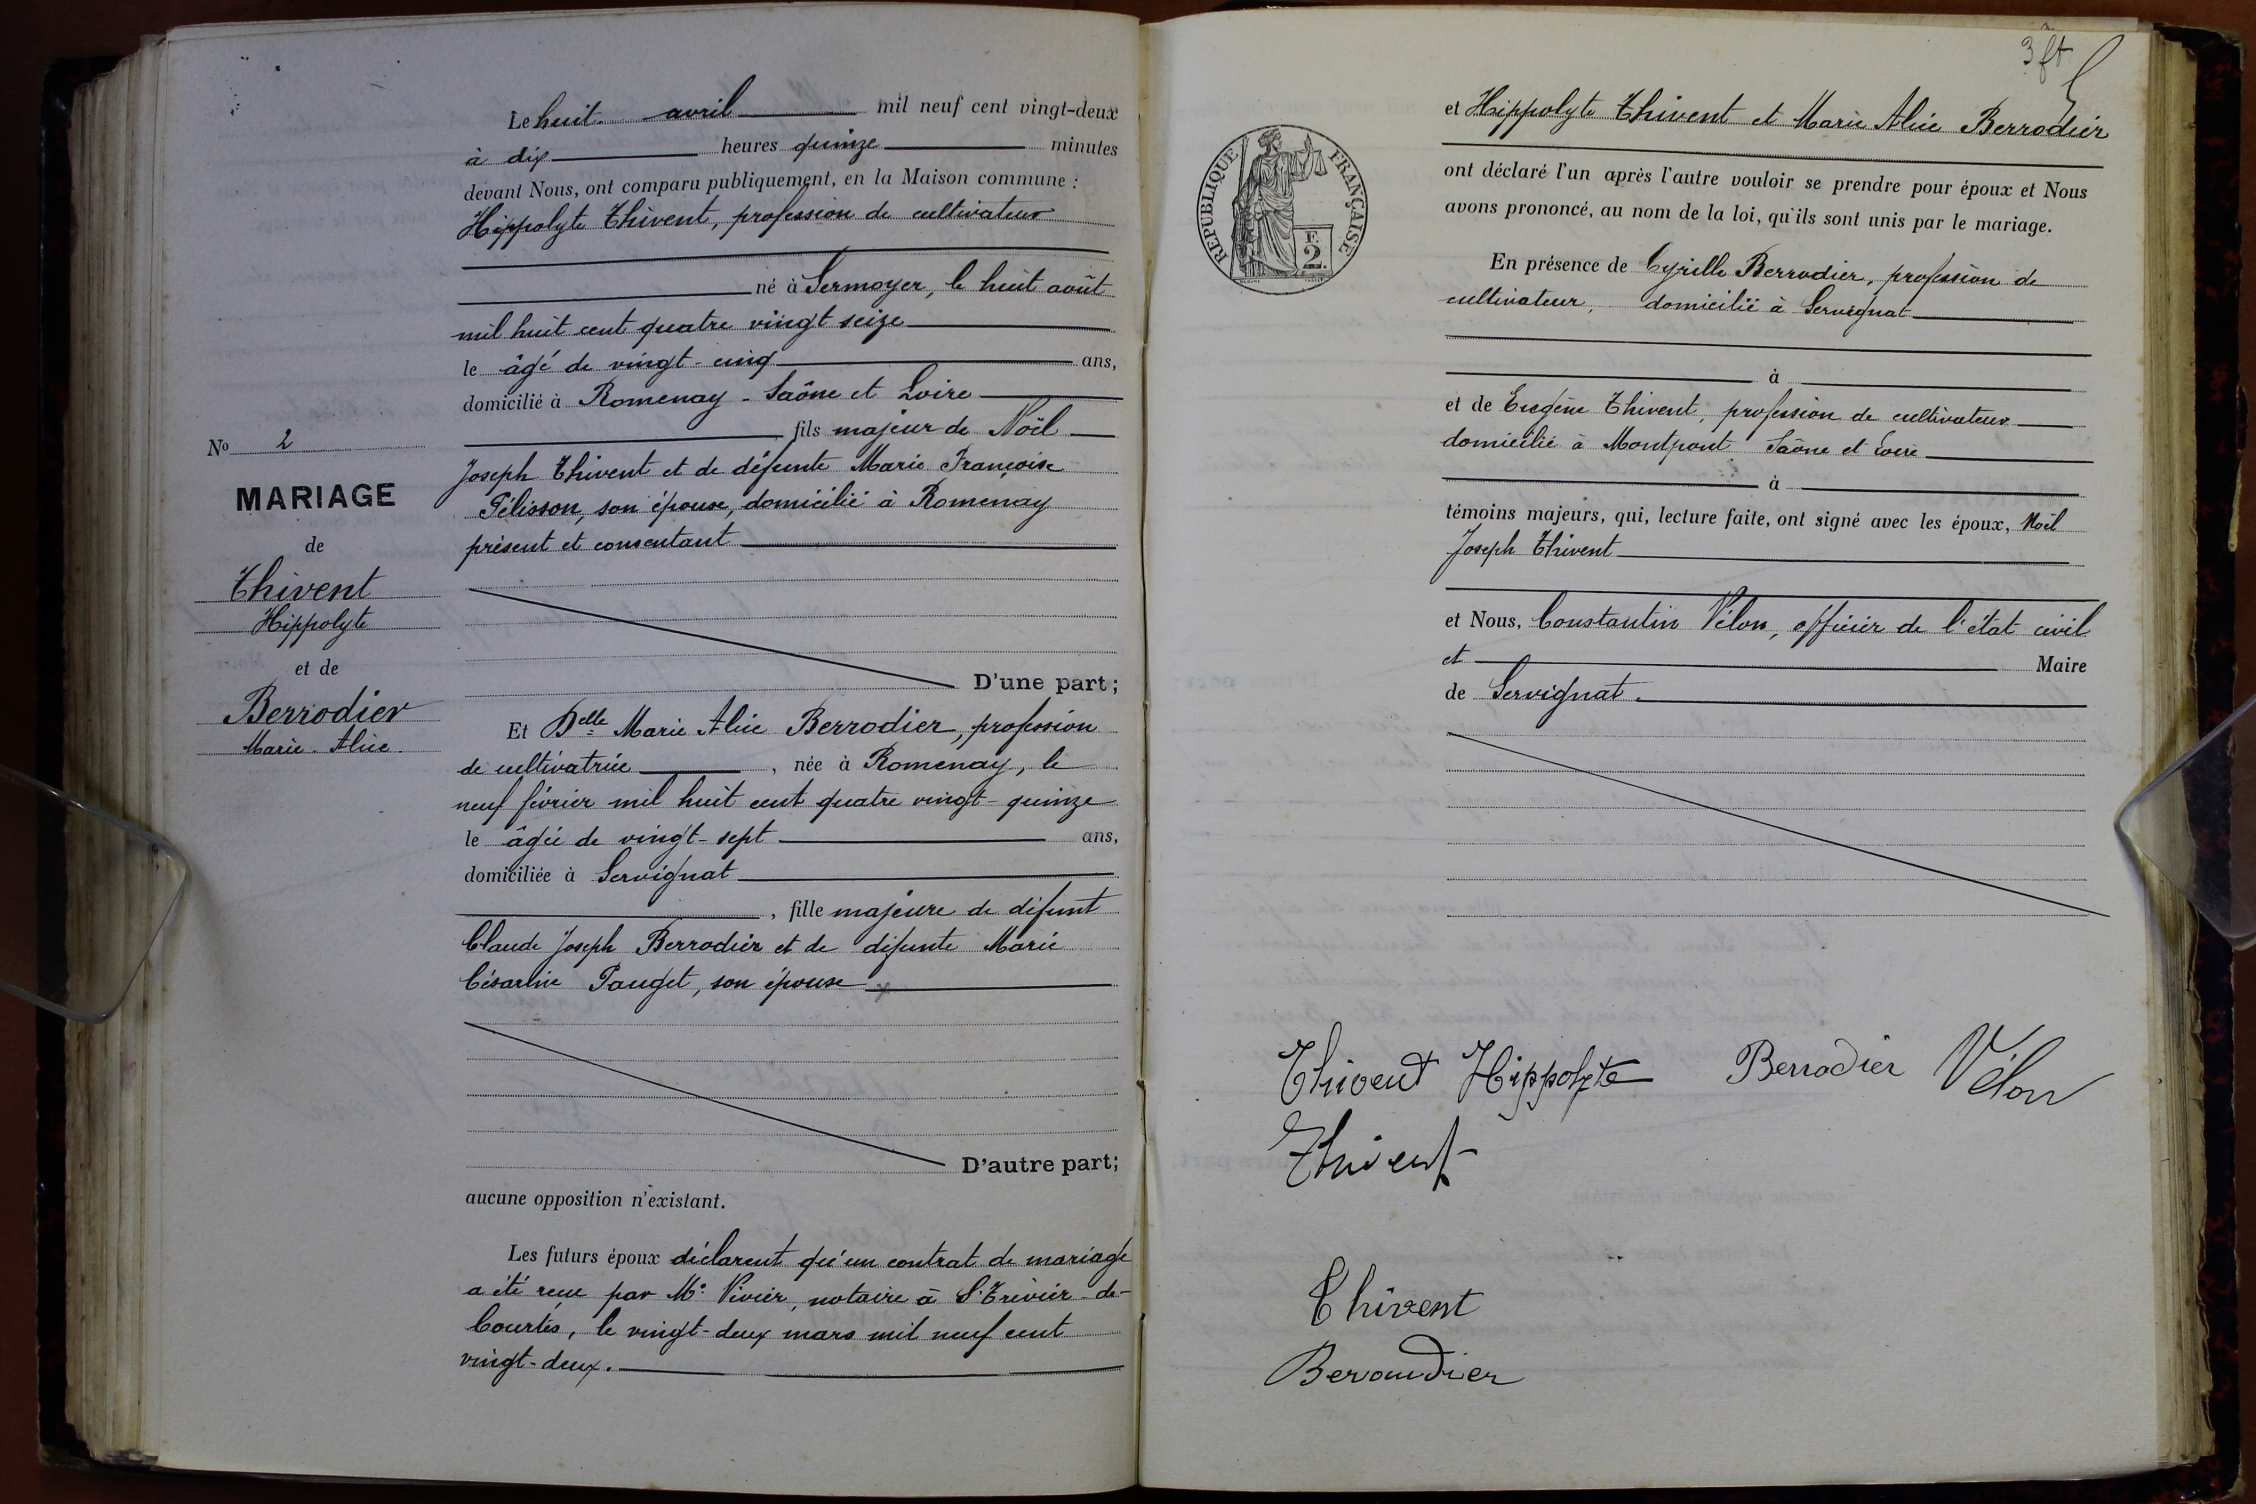 Le huit avril mil neuf cent vingt-deux
à dix heures quinze minutes
devant Nous, ont comparu publiquement, en la Maison commune :
Hippolyte Thivent, profession de cultivateur
né à Sermoyer, le huit août
mil huit cent quatre vingt seize
le âgé de vingt-cinq ans,
domicilié à Romenay - Saône et Loire
fils majeur de Noël
Joseph Thivent et de défunte Marie Françoise
Pélisson, son épouse, domicilié à Romenay
présent et consentant
D'une part ;
Et Delle Marie Alice Berrodier, profession
de cultivatrice, née à Romenay, le
neuf février mil huit cent quatre vingt-quinze
le âgée de vingt-sept ans,
domiciliée à Servignat
, fille majeure de défunt
Claude Joseph Berrodier et de défunte Marie
Césarine Pauget, son épouse
D'autre part ;
aucune opposition n'existant.
Les futurs époux déclarent qu'un contrat de mariage
a été reçu par Me Vivier, notaire à St Trivier-de-
Courtes, le vingt-deux mars mil neuf cent
vingt-deux.
No 2
MARIAGE
de
Thivent
Hippolyte
et de
Berrodier
Marie-Alice.
3 ft
RÉPUBLIQUE FRANÇAISE
F.
2.
et Hippolyte Thivent et Marie Alice Berrodier
ont déclaré l'un après l'autre vouloir se prendre pour époux et Nous
avons prononcé, au nom de la loi, qu'ils sont unis par le mariage.
En présence de Cyrille Berrodier, profession de
cultivateur, domicilié à Servignat
à
et de Eugène Thivent, profession de cultivateur
domicilié à Montpont Saône et Loire
à
témoins majeurs, qui, lecture faite, ont signé avec les époux, Noël
Joseph Thivent
et Nous, Constantin Vélon, officier de l'état civil
et Maire
de Servignat.
Thivent Hippolyte Berrodier Vélon
Thivent
Thivent
Beroudier